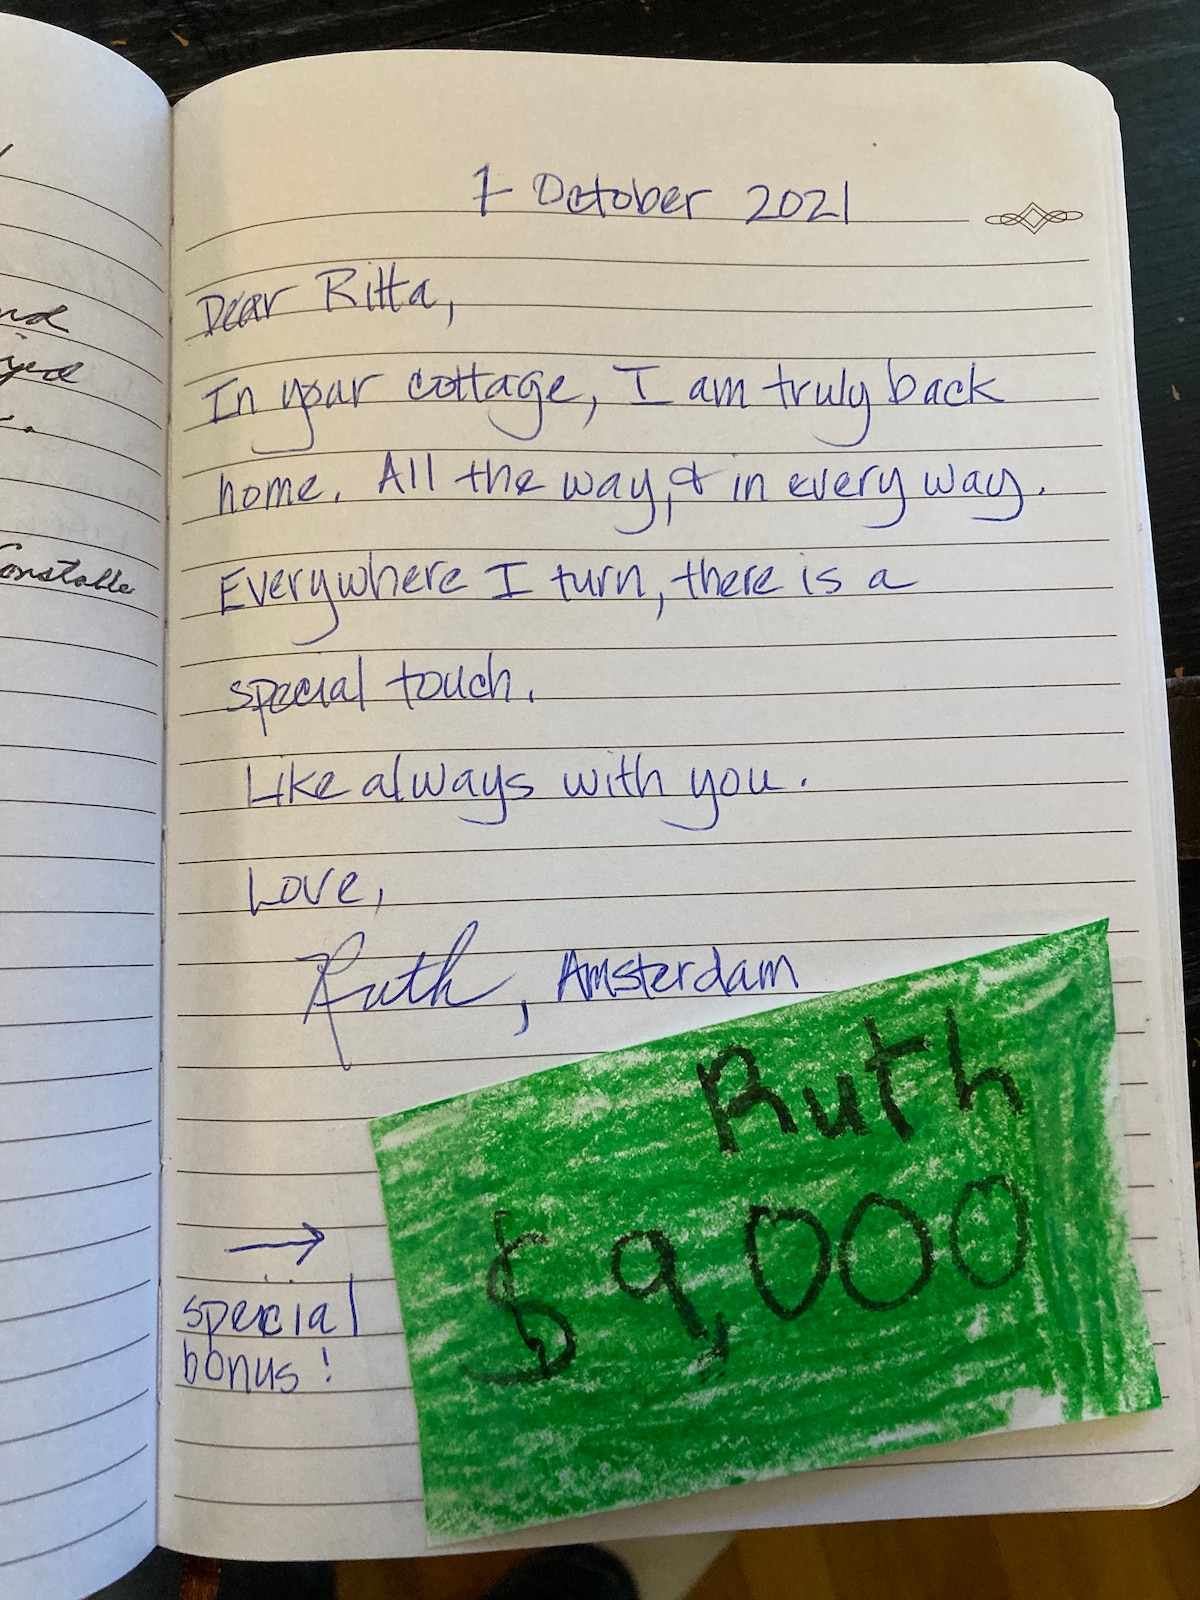 nd
yed
Constable
7 October 2021
Dear Ritta,
In your cottage, I am truly back
home. All the way, & in every way.
Everywhere I turn, there is a
special touch.
Like always with you.
Love,
Ruth, Amsterdam
→
special
bonus!
Ruth
$9,000